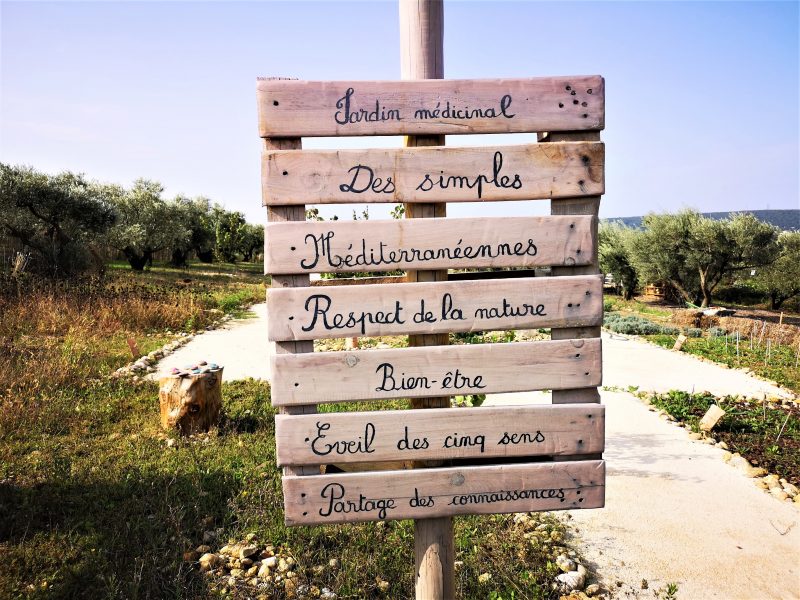 Jardin médicinal
Des simples
Méditerranéennes
Respect de la nature
Bien-être
Eveil des cinq sens
Partage des connaissances